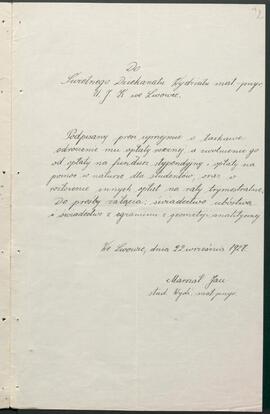 Do
Świetnego Dziekanatu Wydziału mat-przyr.
U. J. K we Lwowie.
Podpisany prosi uprzejmie o łaskawe
odroczenie mu opłaty rocznej, a zwolnienie go
od opłaty na fundusz stypendyjny i opłaty na
pomoc w naturze dla studentów, oraz o
rozłożenie innych opłat na raty trymestralne.
Do prośby załącza: świadectwo ubóstwa
i świadectwo z egzaminu z geometrji analitycznej
We Lwowie, dnia 22 września 1927.
Jan
stud. Wydz. mat. przyr.